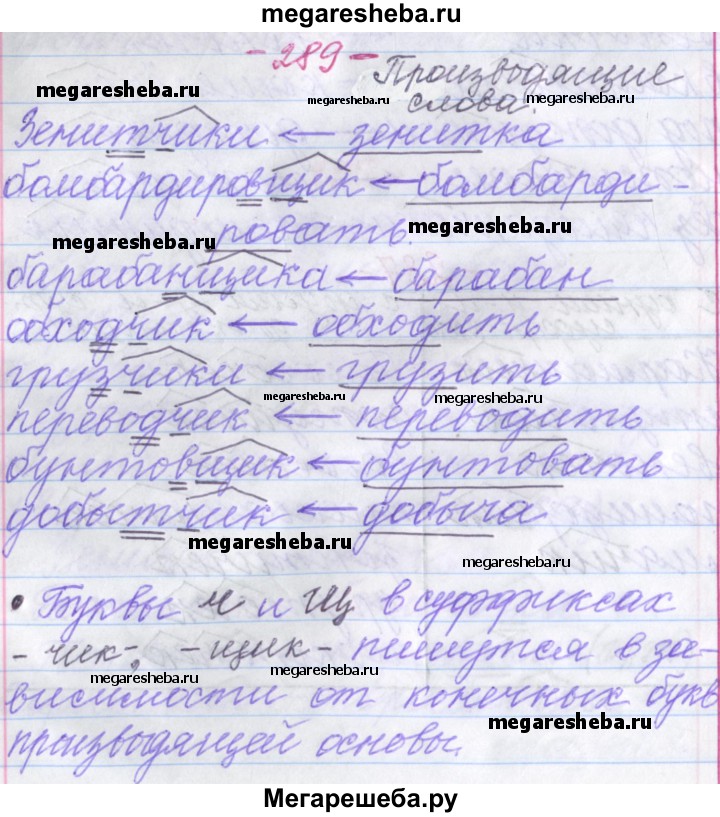 megaresheba.ru
- 289 -
Производящие
megaresheba.ru
слова.
megaresheba.ru
megaresheba.ru
Зенитчики ← зенитка
бомбардировщик ← бомбарди-
megaresheba.ru
megaresheba.ru
ровать.
барабанщика ← барабан
обходчик ← обходить
грузчики ← грузить
megaresheba.ru
megaresheba.ru
переводчик ← переводить
бунтовщик ← бунтовать
добытчик ← добыча
megaresheba.ru
megaresheba.ru
• Буквы Ч и Щ в суффиксах
-чик-, -щик- пишутся в за-
megaresheba.ru
megaresheba.ru
висимости от конечных букв
megaresheba.ru
производящей основы.
Мегарешеба.ру